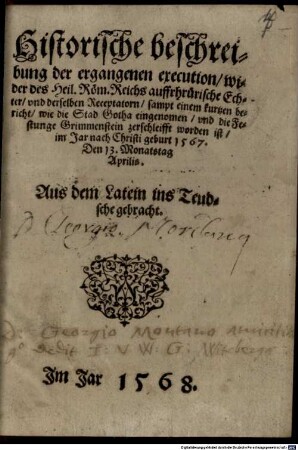 Historische beschrei-
bung der ergangenen execution/ wi-
der des Heil. Röm. Reichs auffrhrürische Ech-
ter/ vnd derselben Receptatorn/ sampt einem kurtzen be-
richt/ wie die Stad Gotha eingenomen/ vnd die Fe-
stunge Grimmenstein zerschleifft worden ist/
im Jar nach Christi geburt 1567.
Den 13. Monatstag
Aprilis.
Aus dem Latein ins Teud-
sche gebracht.
D. Georgio Montano
D. Georgio Montano
dedit I. V. W. G. Witebergę
Im Jar 1568.